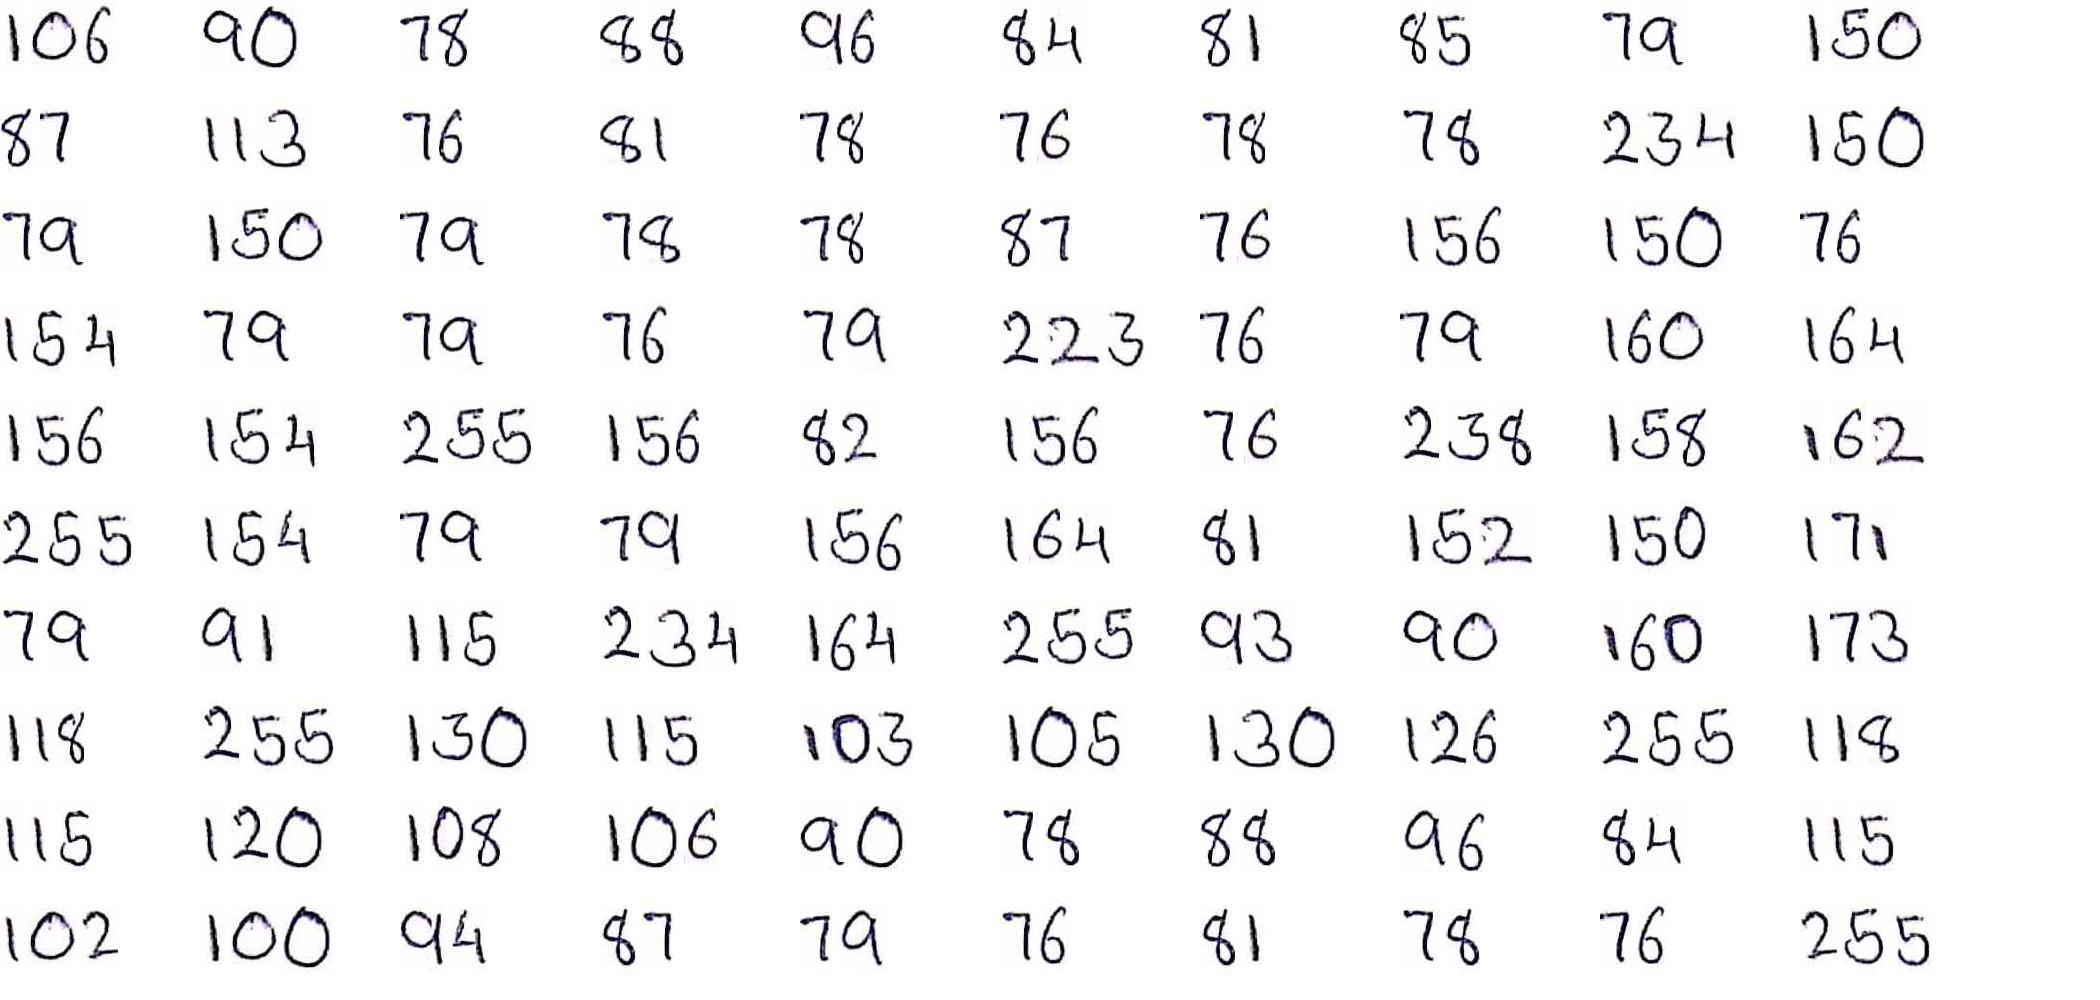 106 90 78 88 96 84 81 85 79 150
87 113 76 81 78 76 78 78 234 150
79 150 79 78 78 87 76 156 150 76
154 79 79 76 79 223 76 79 160 164
156 154 255 156 82 156 76 238 158 162
255 154 79 79 156 164 81 152 150 171
79 91 115 234 164 255 93 90 160 173
118 255 130 115 103 105 130 126 255 118
115 120 108 106 90 78 88 96 84 115
102 100 94 87 79 76 81 78 76 255